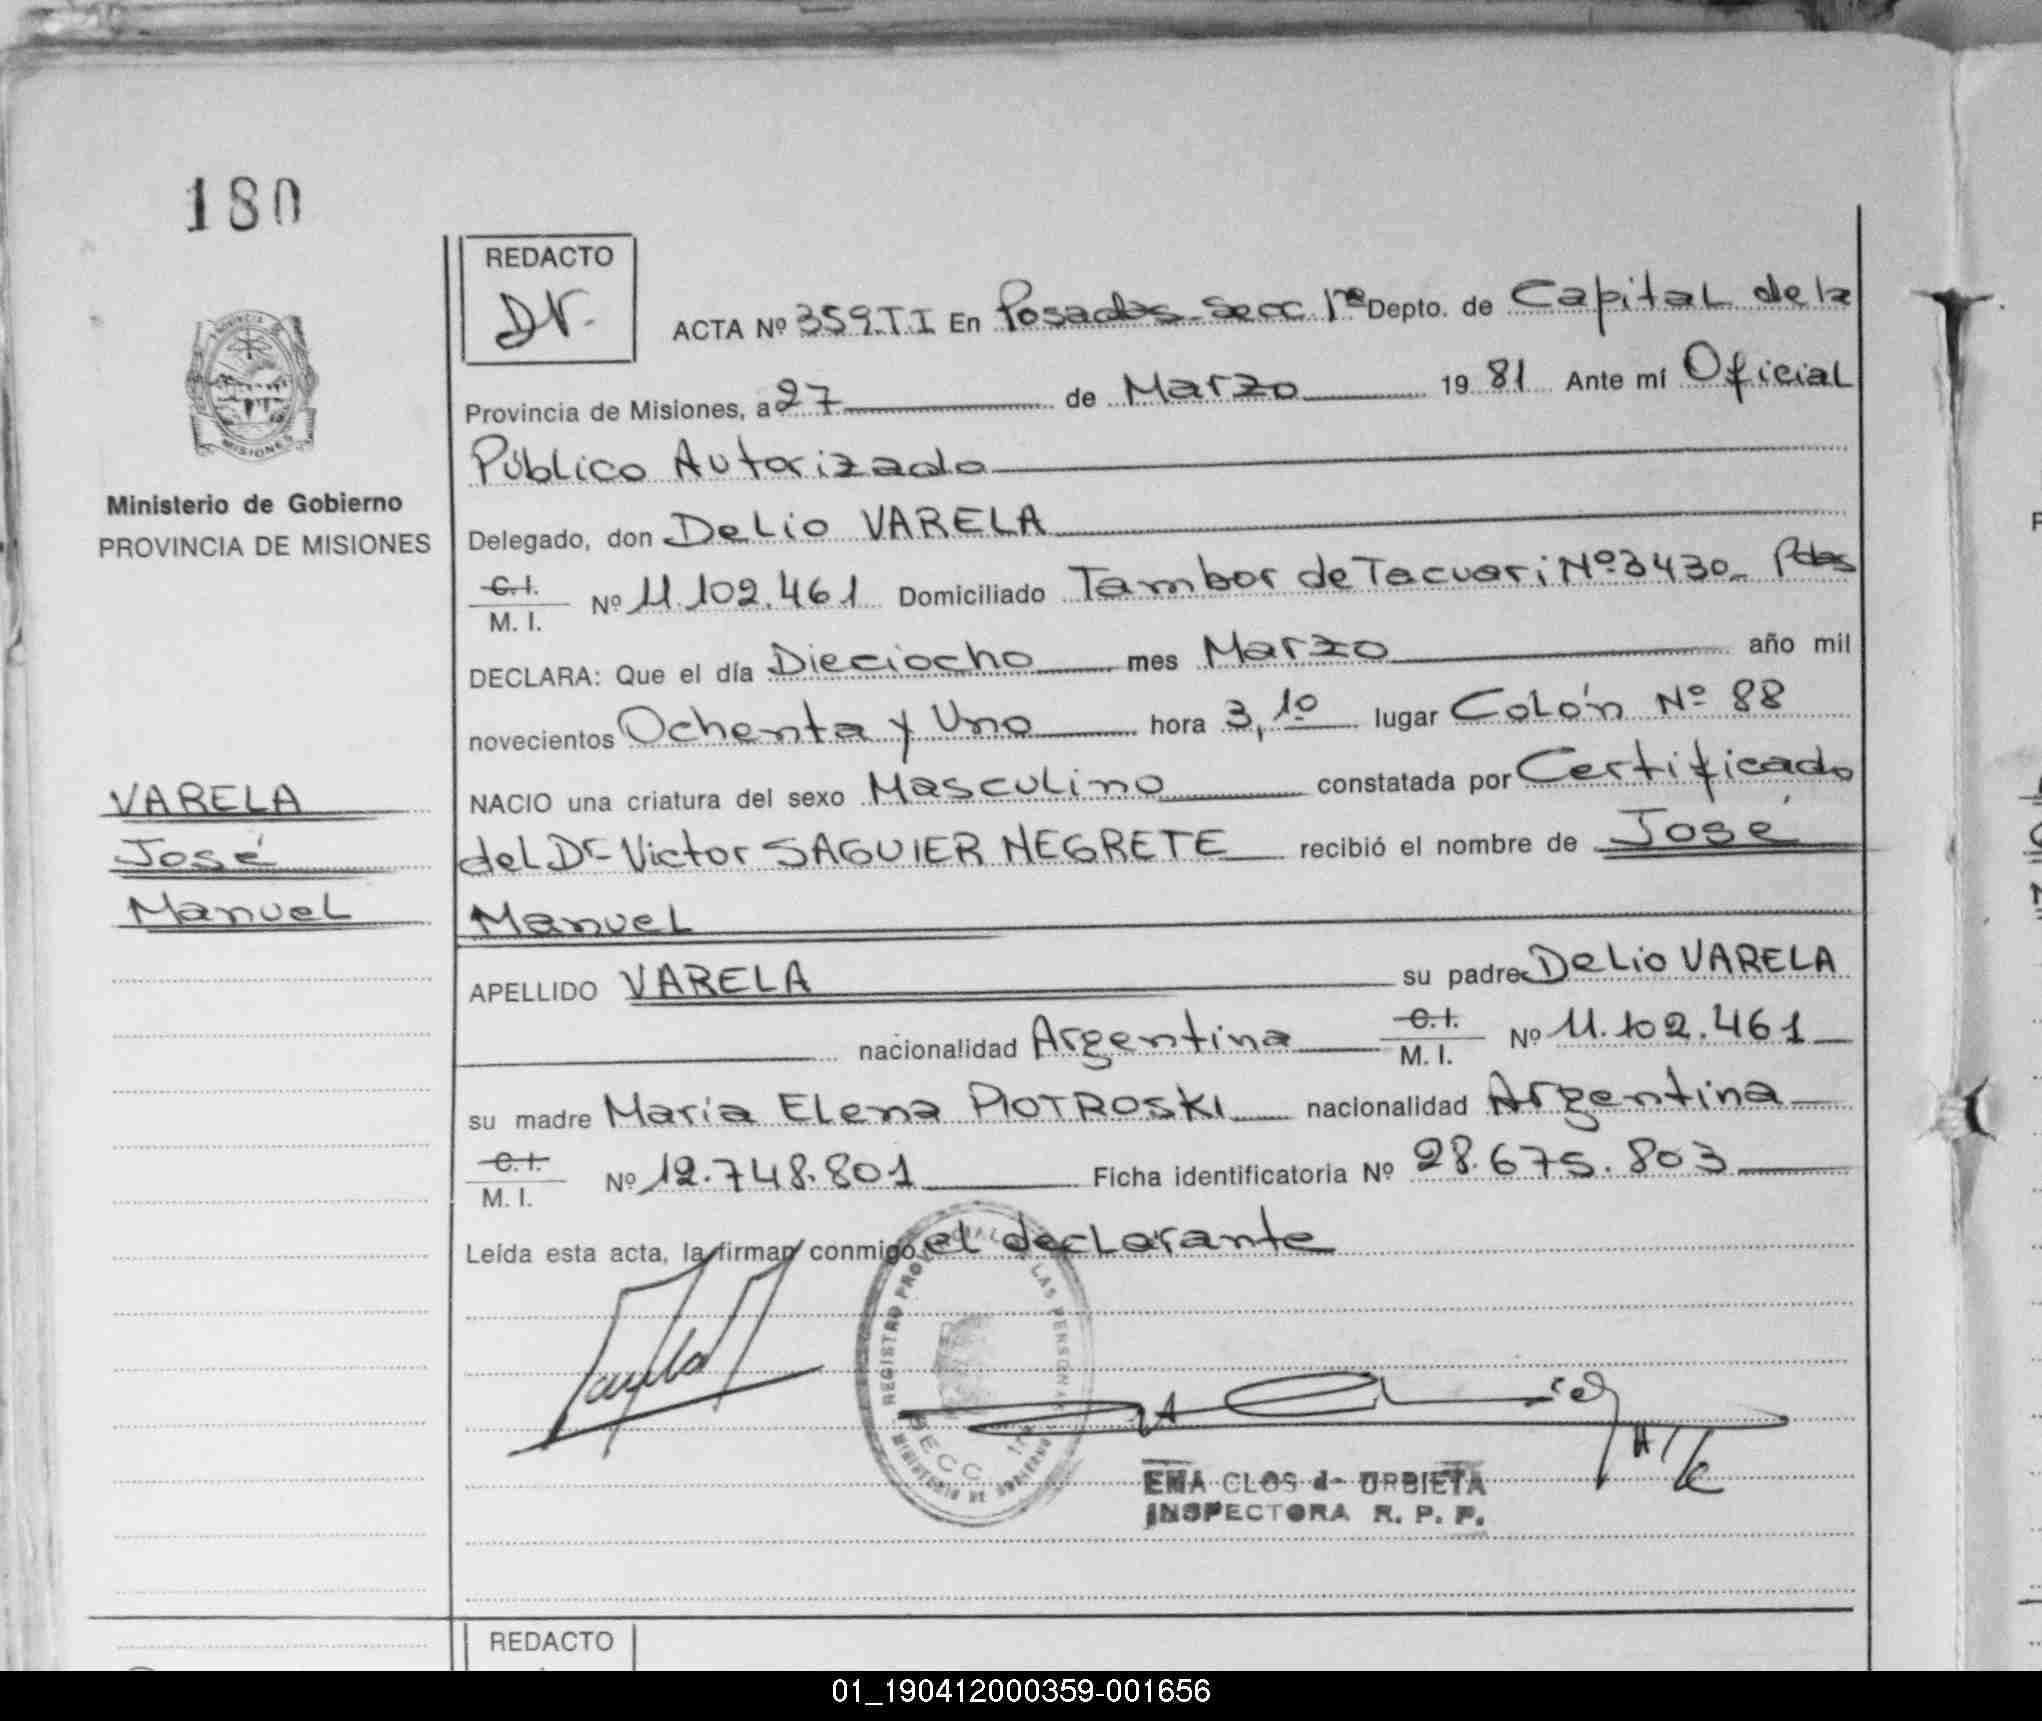 180
REDACTO
DV.
ACTA Nº 359.T I En Posadas-Secc 1ra Depto. de Capital de la
Provincia de Misiones, a 27 de Marzo 19 81 Ante mí Oficial
Público Autorizado
Ministerio de Gobierno
PROVINCIA DE MISIONES
Delegado, don Delio VARELA
C.I.
M. I. Nº 11.102.461 Domiciliado Tambor de Tacuari Nº 3430- Pdas
DECLARA: Que el día Dieciocho mes Marzo año mil
novecientos Ochenta y Uno hora 3,10 lugar Colón Nº 88
VARELA
José
Manuel
NACIO una criatura del sexo Masculino constatada por Certificado
del Dr Victor SAGUIER NEGRETE recibió el nombre de José
Manuel
APELLIDO VARELA su padre Delio VARELA
nacionalidad Argentina C.I. M. I. Nº 11.102.461
su madre Maria Elena PIOTROSKI nacionalidad Argentina
C.I.
M. I. Nº 12.748.801 Ficha identificatoria Nº 28.675.803
Leída esta acta, la firman conmigo el declarante
REGISTRO PROVINCIAL DE LAS PERSONAS
SECC 1ra
MINISTERIO DE GOBIERNO
EMA CLOS d- URBIETA
INSPECTORA R. P. P.
REDACTO
01_190412000359-001656